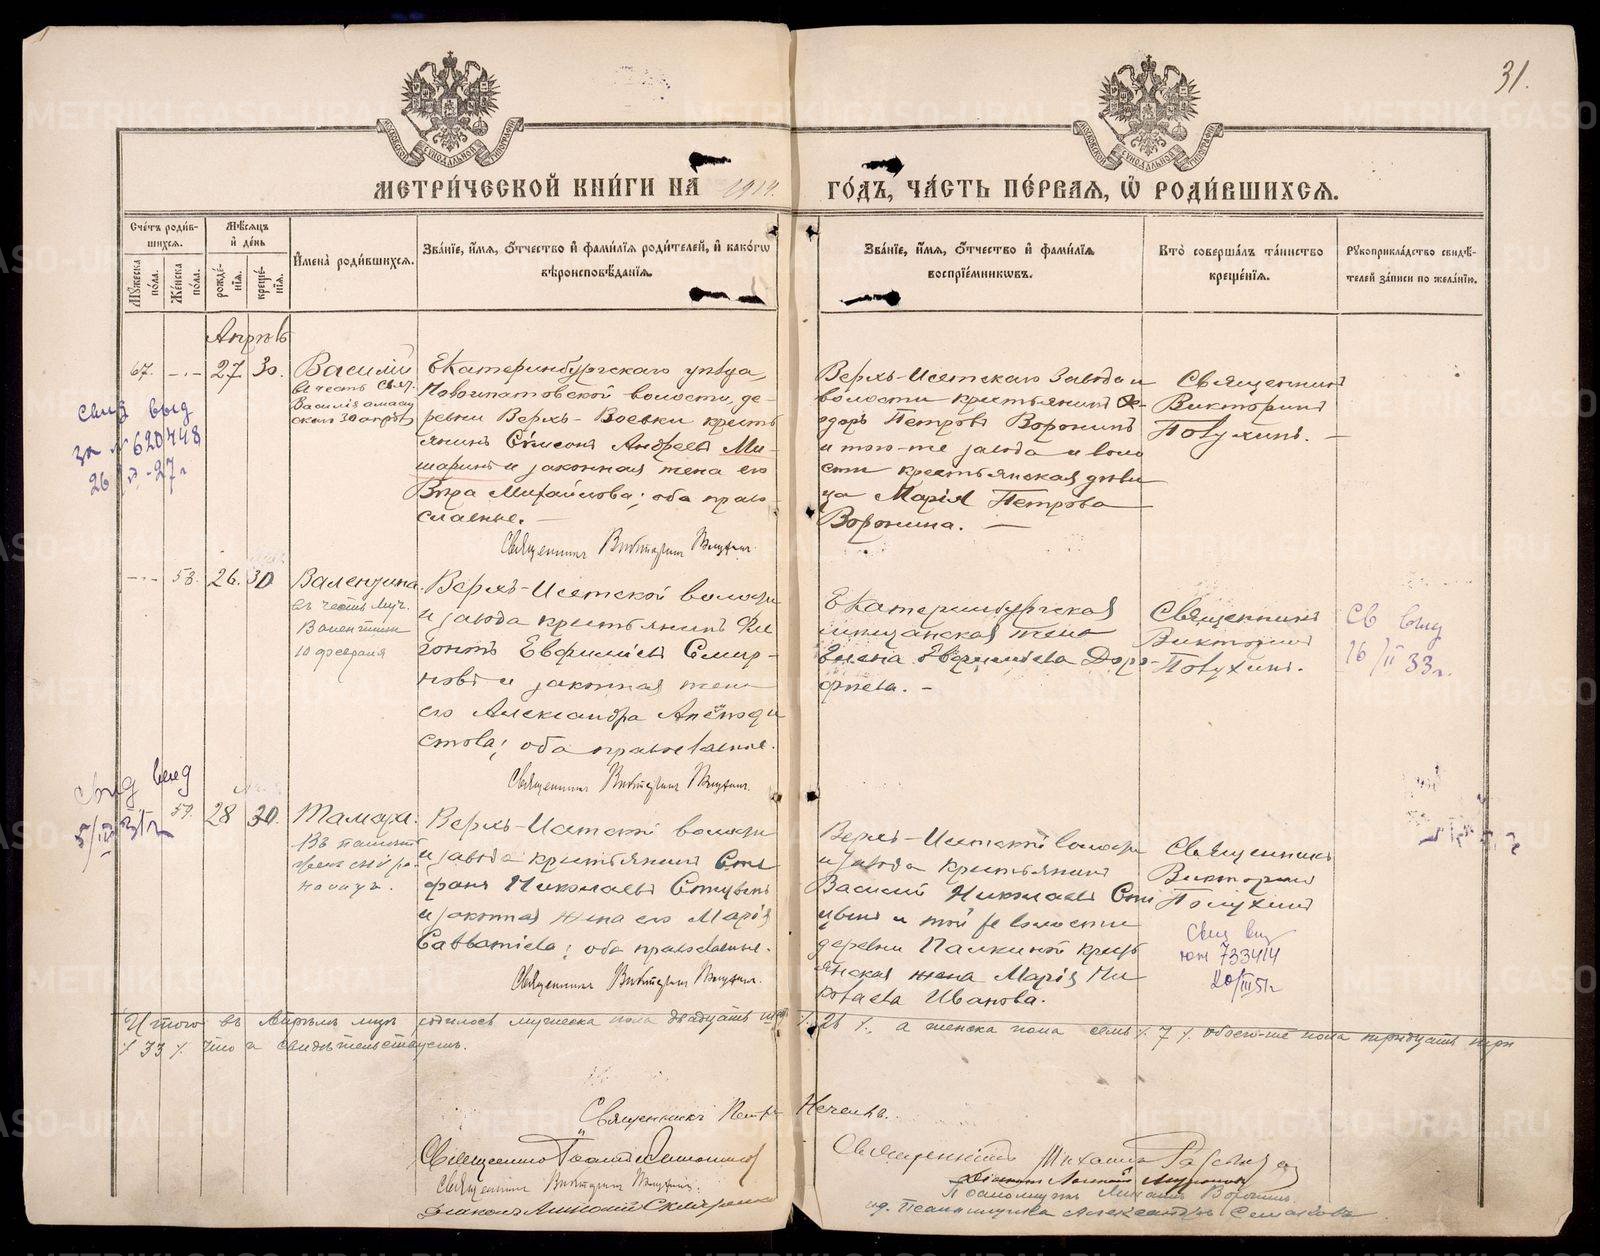 31.
МОСКОВСКОЙ СѴНОДАЛЬНОЙ ТИПОГРАФІИ
МОСКОВСКОЙ СѴНОДАЛЬНОЙ ТИПОГРАФІИ
МЕТРИ́ЧЕСКОЙ КНИ́ГИ НА 1914 ГО́ДЪ, ЧА́СТЬ ПЕ́РВАЯ, Ѡ РОДИ́ВШИХСЯ.
Сче́тъ роди́в-
шихся.
Мꙋ́жеска по́ла.
Же́нска по́ла.
Мѣ́сяцъ
и де́нь
рожде́-
нія.
креще́-
нія.
Имена̀ роди́вшихся.
Зва́нїе, и́мя, ѻ́тчество и фами́лїя роди́телей, и како́гѡ
вѣроисповѣ́данїя.
Зва́нїе, и́мя, ѻ́тчество и фами́лїя
воспрїе́мникѡвъ.
Кто̀ соверша́лъ та́инство
креще́нїя.
Рꙋкоприкла́дство свидѣ́-
телей за́писи по жела́нїю.
Апрѣль
67. -.- 27. 30.
Василій
въ честь Свящ.
Василія амасій
скаго 30 апрѣля
Екатеринбургскаго уѣзда,
Новоипатовской волости, де-
ревни Верхъ-Боевки кресть
янинъ Симеонъ Андреевъ Ми-
шаринъ и законная жена его
Вѣра Михайлова; оба право-
славные.
Священникъ Викторинъ Потухинъ.
Верхъ-Исетскаго Завода и
волости крестьянинъ Ѳе-
доръ Петровъ Воронинъ
и того-же завода и воло
сти крестьянская дѣви
ца Марія Петрова
Воронина. —
Священникъ
Викторинъ
Потухинъ. —
свид выд
за № 620448
26/VI-27 г
-.- 58. 26. 30
Валентина.
въ честь муч.
Валентины
10 февраля
Верхъ-Исетской волости
и завода крестьянинъ Фи
гонтъ Евфиміевъ Смир-
новъ и законная жена
его Александра
стова; оба православные.
Священникъ Викторинъ Потухинъ.
Екатеринбургская
мѣщанская жена
Елена Евфиміева Доро-
феева. -
Священникъ
Викторинъ
Потухинъ.
Св выд
16/II 33 г.
свид выд
5/IV 31 г
59. 28 30.
Тамара.
Верхъ-Исетской волости
и завода крестьянинъ Сте
фанъ Николаевъ
и законная жена его Марія
Савватіева; оба православные.
Священникъ Викторинъ Потухинъ.
Верхъ-Исетской волости
и завода крестьянинъ
Василій Николаевъ
и той же волости
деревни Палкиной кресть
янская жена Марія Ни
колаева Иванова.
Священникъ
Викторинъ
Потухинъ
Свид выд
733414
20/III 51 г
Итого въ Апрѣлѣ м-цѣ родилось мужеска пола двадцать шесть /. 26 /. а женска пола семь /. 7 /. обоего-же пола тридцать три
/. 33 /. что и свидѣтельствуетъ.
Священникъ Петръ
Священникъ Іоаннъ
Священникъ Викторинъ Потухинъ.
Діаконъ
Священникъ Михаилъ
Діаконъ
Псаломщикъ Михаилъ Воронинъ.
и.д. Псаломщика Александръ
METRIKI.GASO-URAL.RU